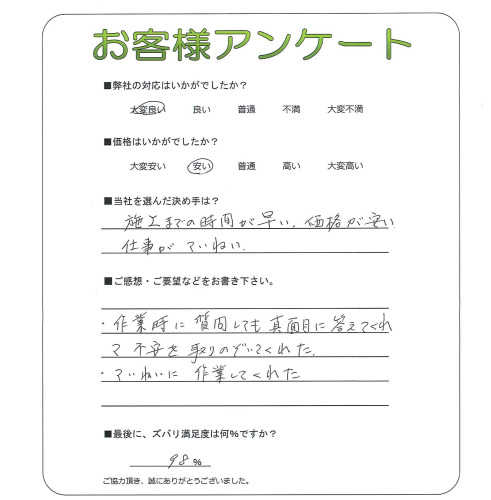 お客様アンケート
■弊社の対応はいかがでしたか？
大変良い 良い 普通 不満 大変不満
■価格はいかがでしたか？
大変安い 安い 普通 高い 大変高い
■当社を選んだ決め手は？
施工までの時間が早い、価格が安い
仕事がていねい.
■ご感想・ご要望などをお書き下さい。
・作業時に質問しても真面目に答えてくれ
て不安を取りのぞいてくれた.
・ていねいに作業してくれた
■最後に、ズバリ満足度は何%ですか？
98 %
ご協力頂き、誠にありがとうございました。